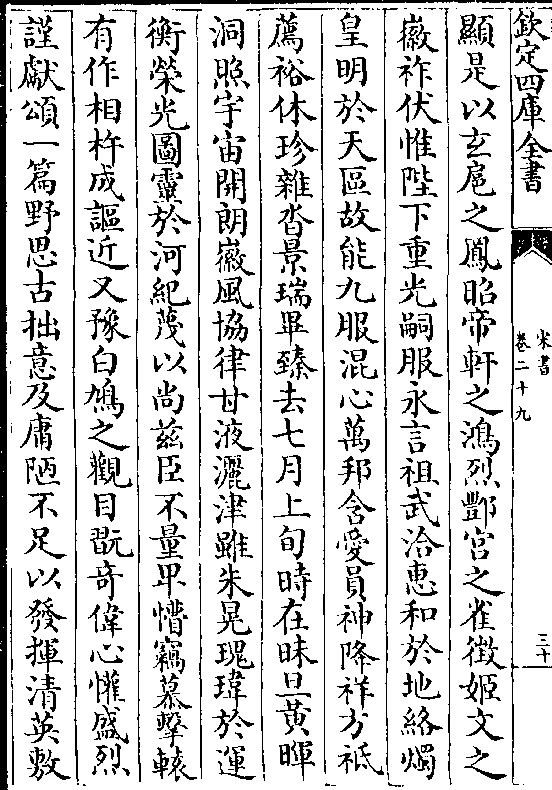 欽定四庫全書
宋書
卷二十九
三十
顯是以玄扈之鳳昭帝軒之鴻烈酆宫之雀徴姬文之
徽祚伏惟陛下重光嗣服永言祖武洽惠和於地絡燭
皇明於天區故能九服混心萬邦含愛員神降祥方祗
薦裕休珍雜沓景瑞畢臻去七月上旬時在昧旦黄暉
洞照宇宙開朗徽風協律甘液灑津雖朱晃瑰瑋於運
衡榮光圖靈於河紀蔑以尚兹臣不量卑懵竊慕擊轅
有作相杵成謳近又豫白鳩之觀目翫竒偉心懽盛烈
謹獻頌一篇野思古拙意及庸陋不足以發揮清英敷